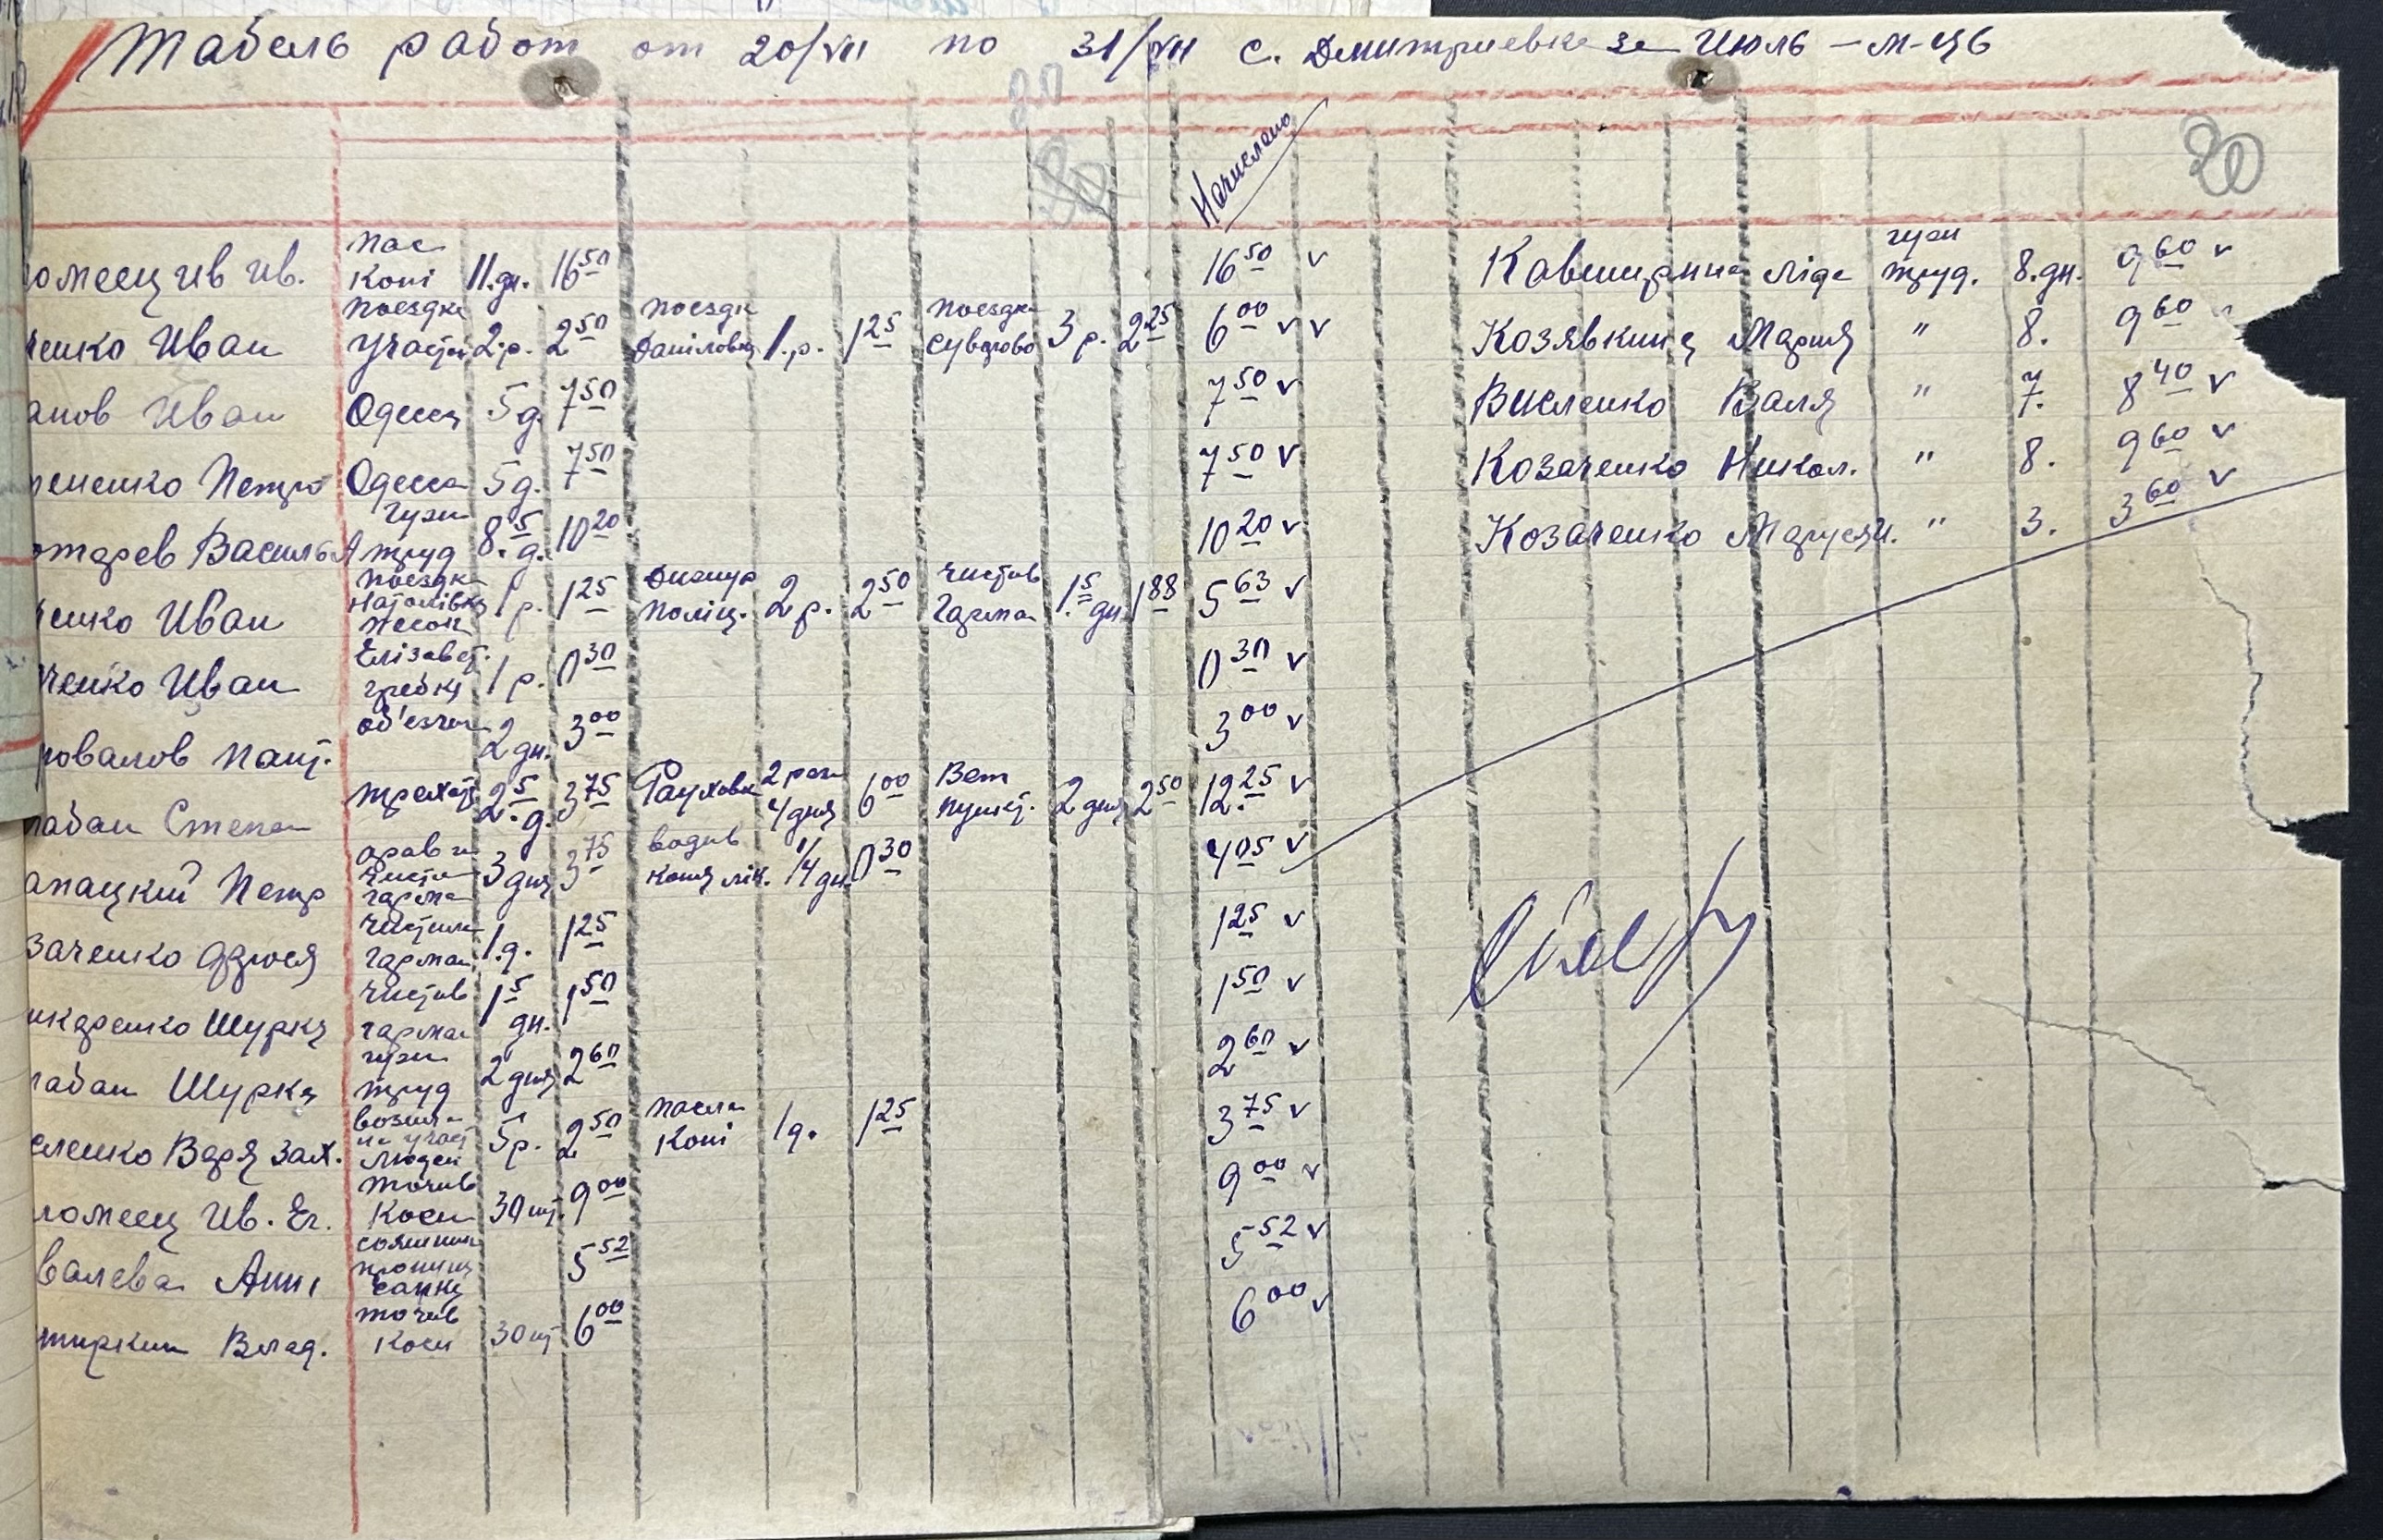 Табель работ от 20/VII по 31/VII с. Дмитриевка за Июль – м-ць
80
80
20
Начислено
омеец Ив Ив. пас коні 11.дн. 16 50 16 50 v
енко Иван поездка 2.р. 2 50 поездк Даніловка 1.р. 1 25 поездка Суворово 3 р. 2 25 6 00 v v
анов Иван Одесса 5 д. 7 50 7 50 v
ененко Петро Одесса 5 д. 7 50 7 50 v
отарев Василь гужи труд 8.5 д. 10 20 10 20 v
енко Иван поездка 1 р. 1 25 поліц. 2 р. 2 50 чистив гарман 1.5 дн. 1 88 5 63 v
ченко Иван Елізавет. гребка 1 р. 0 30 0 30 v
овалов Пант. об'езчик 2 дн. 3 00 3 00 v
абан Степан 2.5 д. 3 75 Рауховка 2 раза 4 дня 6 00 Вет пункт. 2 дня 2 50 12.25 v
апацкий Петр орав и чистил гарман 3 дня 3 75 водив коня лік. 1/4 дн. 0 30 4 05 v
заченко Дзюся чистила гарман 1.д. 1 25 1 25 v
каренко Шурка чистив гарман 1 5 дн. 1 50 1 50 v
абан Шурка гужи труд 2 дня 2 60 2 60 v
еленко Варя Зах. возила на участ людей 5 р. 2 50 пасла коні 1 д. 1 25 3 75 v
ломеец Ив. Ег. точив коси 30 шт. 9 00 9 00 v
валева Анна 5 52 5 52 v
тиркин Влад. точив коси 30 шт 6 00 6 00 v
Кавширина Ліда гужи труд. 8.дн. 9 60 v
Козявкина Мария " 8. 9 60
Висленко Валя " 7. 8 40 v
Козаченко Никол. " 8. 9 60 v
Козаченко Маруся " 3. 3 60 v